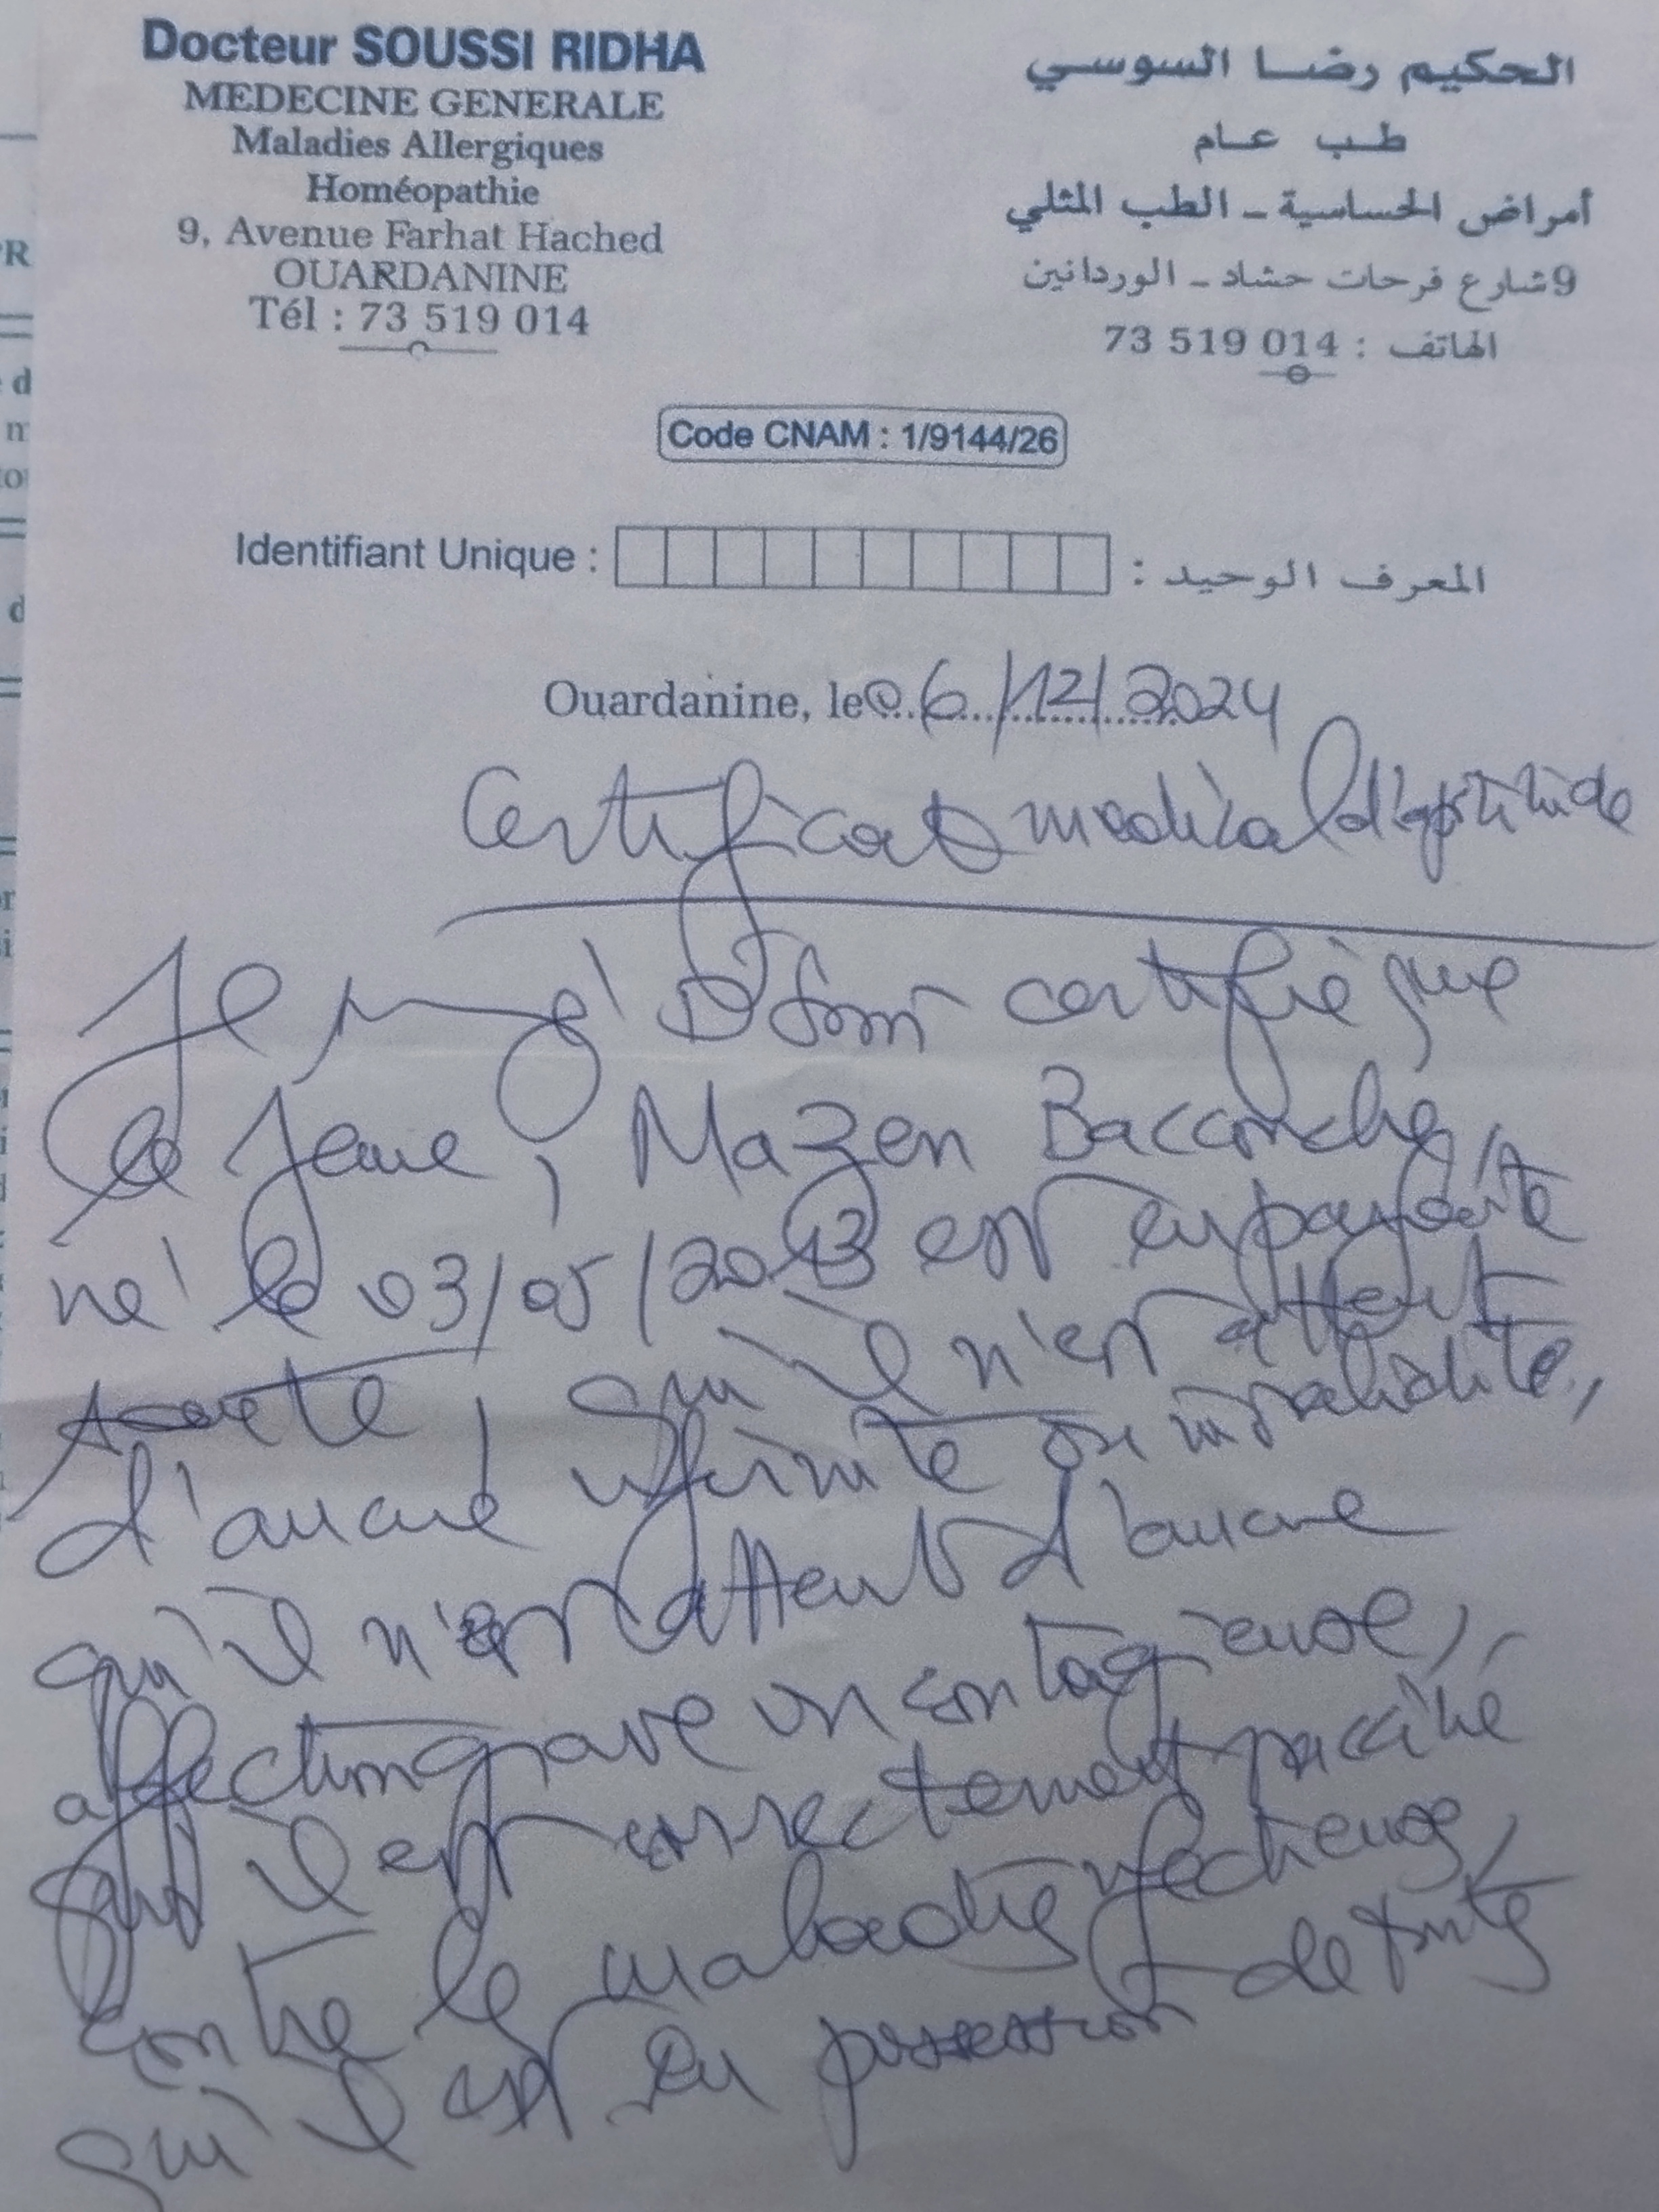 Docteur SOUSSI RIDHA
MEDECINE GENERALE
Maladies Allergiques
Homéopathie
9, Avenue Farhat Hached
OUARDANINE
Tél : 73 519 014
الحكيم رضا السوسي
طب عام
أمراض الحساسية - الطب المثلي
9 شارع فرحات حشاد - الوردانين
الهاتف : 73 519 014
Code CNAM : 1/9144/26
Identifiant Unique : المعرف الوحيد :
Ouardanine, le 06/12/2024
Certificat medical d'aptitude
Je certifie que
le jeune, Mazen Baccouche,
né le 03/05/2013 est en parfaite
santé, qu'il n'est atteint
d'aucune infirmité ou invalidité,
qu'il n'est atteint d'aucune
affection grave ou contagieuse,
qu'il est correctement vacciné
contre les maladies infectieuses,
qu'il est en possession de toutes